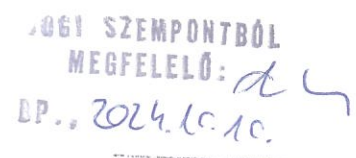 JOGI SZEMPONTBÓL
MEGFELELŐ:
BP., 2024.10.10.